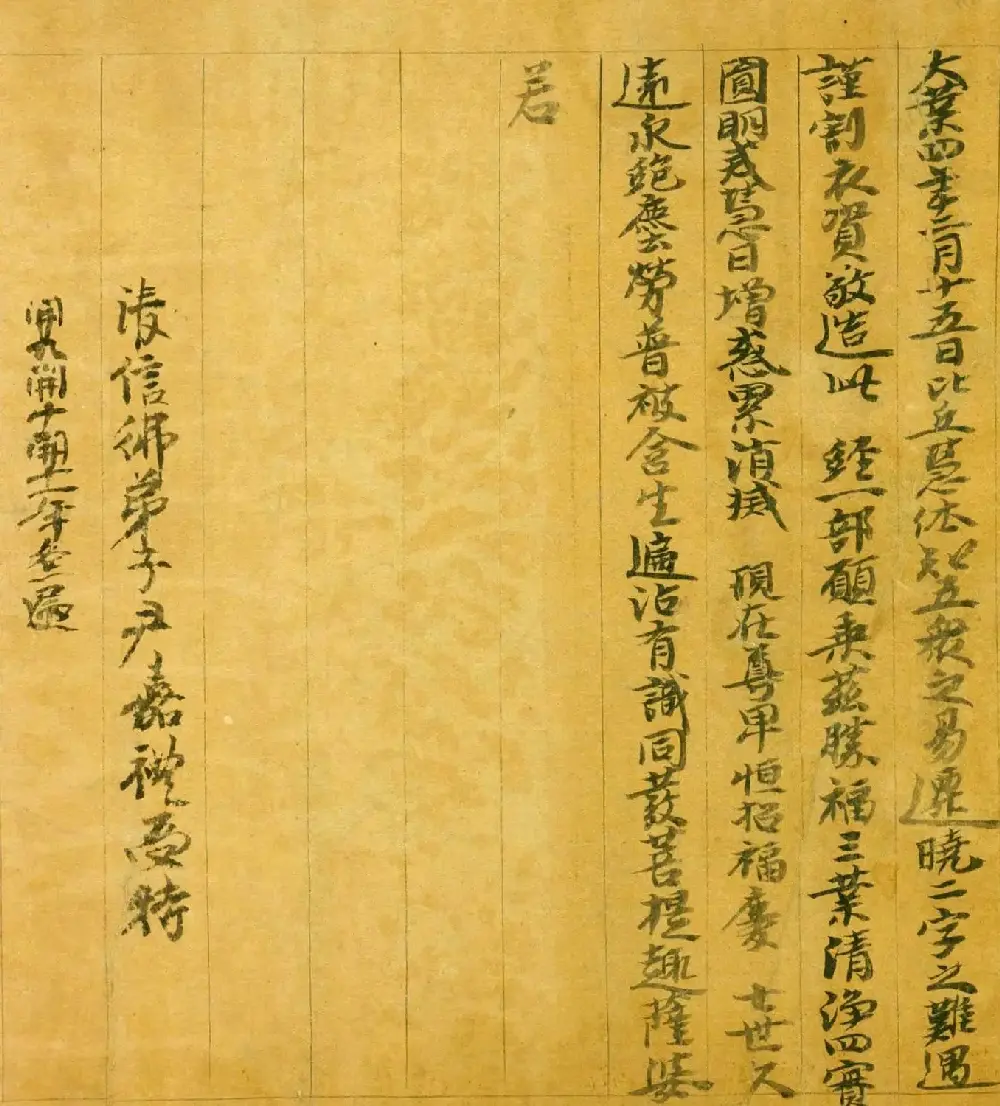 大業四年二月十五日比丘慧休知五衆之易遷曉二字之難遇
謹割衣資敬造此 經一部願乘茲勝福三業清淨四實
圓明戒慧日增惑累消滅 現在尊卑恒招福慶 七世久
遠永絕塵勞普被含生遍沾有識同發菩提趣薩婆
若
清信佛弟子尹嘉禮受持
開九開十開十一年各一遍